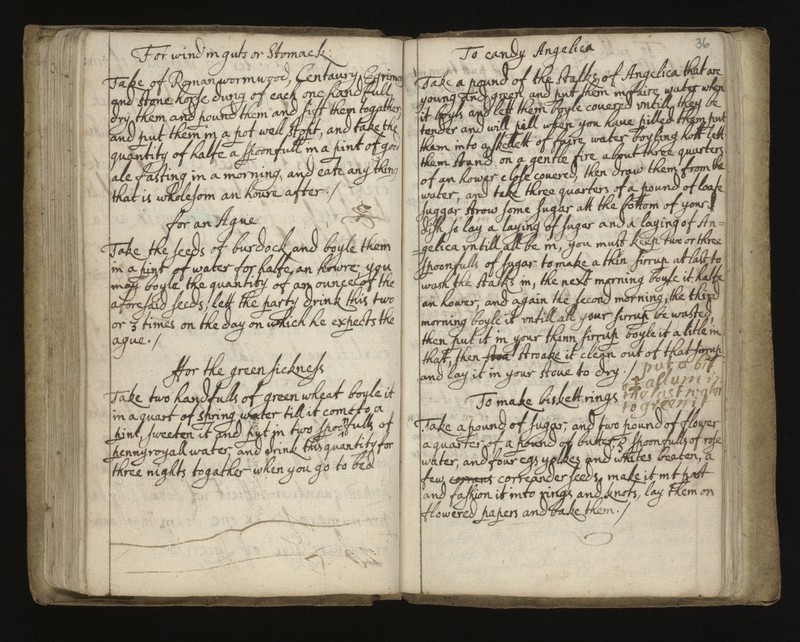 For wind in guts or Stomack
Take of Roman wormwood, Centaury, Egrimo
and stone horse dung of each one handfull
dry them and pound them and sift them togather
and put them in a pot well stopt, and take the
quantity of halfe a spoonfull in a pint of
ale fasting in a morning, and eate any thing
that is wholesom an houre after ./
for an Ague
Take the seeds of burdock and boyle them
in a pint of water for halfe an howre, you
may boyle the quantity of an ounce of the
aforesaid seeds, lett the party drink this two
or 3 times on the day on which he expects the
ague ./
ffor the green sickness
Take two handfulls of green wheat boyle it
in a quart of spring water till it come to a
pint, sweeten it and put in two spoonfulls of
pennyroyall water, and drink this quantity for
three nights togather when you go to bed
36
To candy Angelica
Take a pound of the stalks of Angelica that are
young and green and put them in faire water when
it boyls and lett them boyle covered untill they be
tender and will pill when you have pilled them put
them into a skellett of faire water boyling hott lett
them stand on a gentle fire about three quarters
of an hower close covered, then draw them from the
water, and take three quarters of a pound of loafe
suggar strow some sugar att the bottom of your
dish so lay a laying of sugar and a laying of An=
=gelica untill all be in, you must keep two or three
spoonfulls of sugar to make a thin sirrup at last to
wash the stalks in, the next morning boyle it halfe
an hower, and again the second morning, the third
morning boyle it untill all your sirrup be wasted,
then put it in your thinn sirrup boyle it a litle in
that, then stroake it clean out of that sirrup
and lay it in your stove to dry ./ put a bit
of allum in
the last water
to green it
To make biskett rings
Take a pound of sugar, and two pound of flower
a quarter of a pound of butter 3 spoonfulls of rose
water, and four egs yolkes and whites beaten, a
few correander seeds, make it int past
and fashion it into rings and knots, lay them on
flowered papers and bake them ./